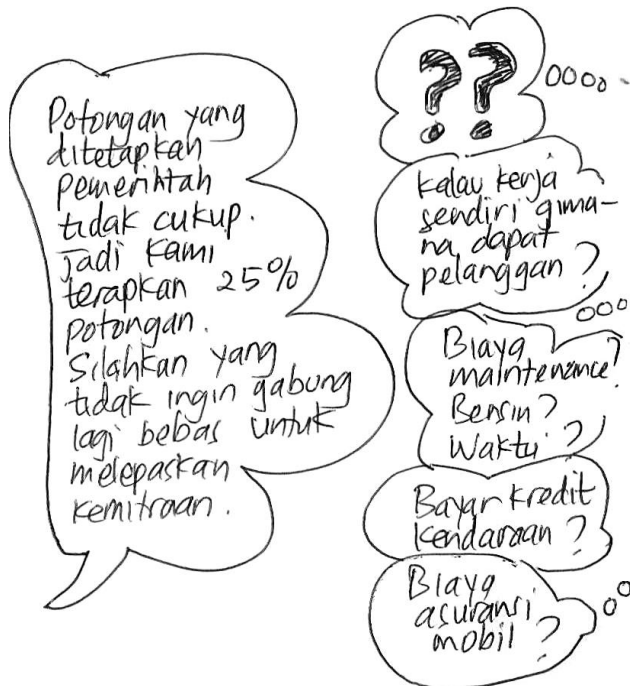 Potongan yang
ditetapkan
pemerintah
tidak cukup.
Jadi kami
terapkan 25%
potongan.
Silahkan yang
tidak ingin gabung
lagi bebas untuk
melepaskan
kemitraan.
??
kalau kerja
sendiri gima-
na dapat
pelanggan?
Biaya
maintenance?
Bensin?
Waktu?
Bayar kredit
kendaraan?
Biaya
asuransi
mobil?